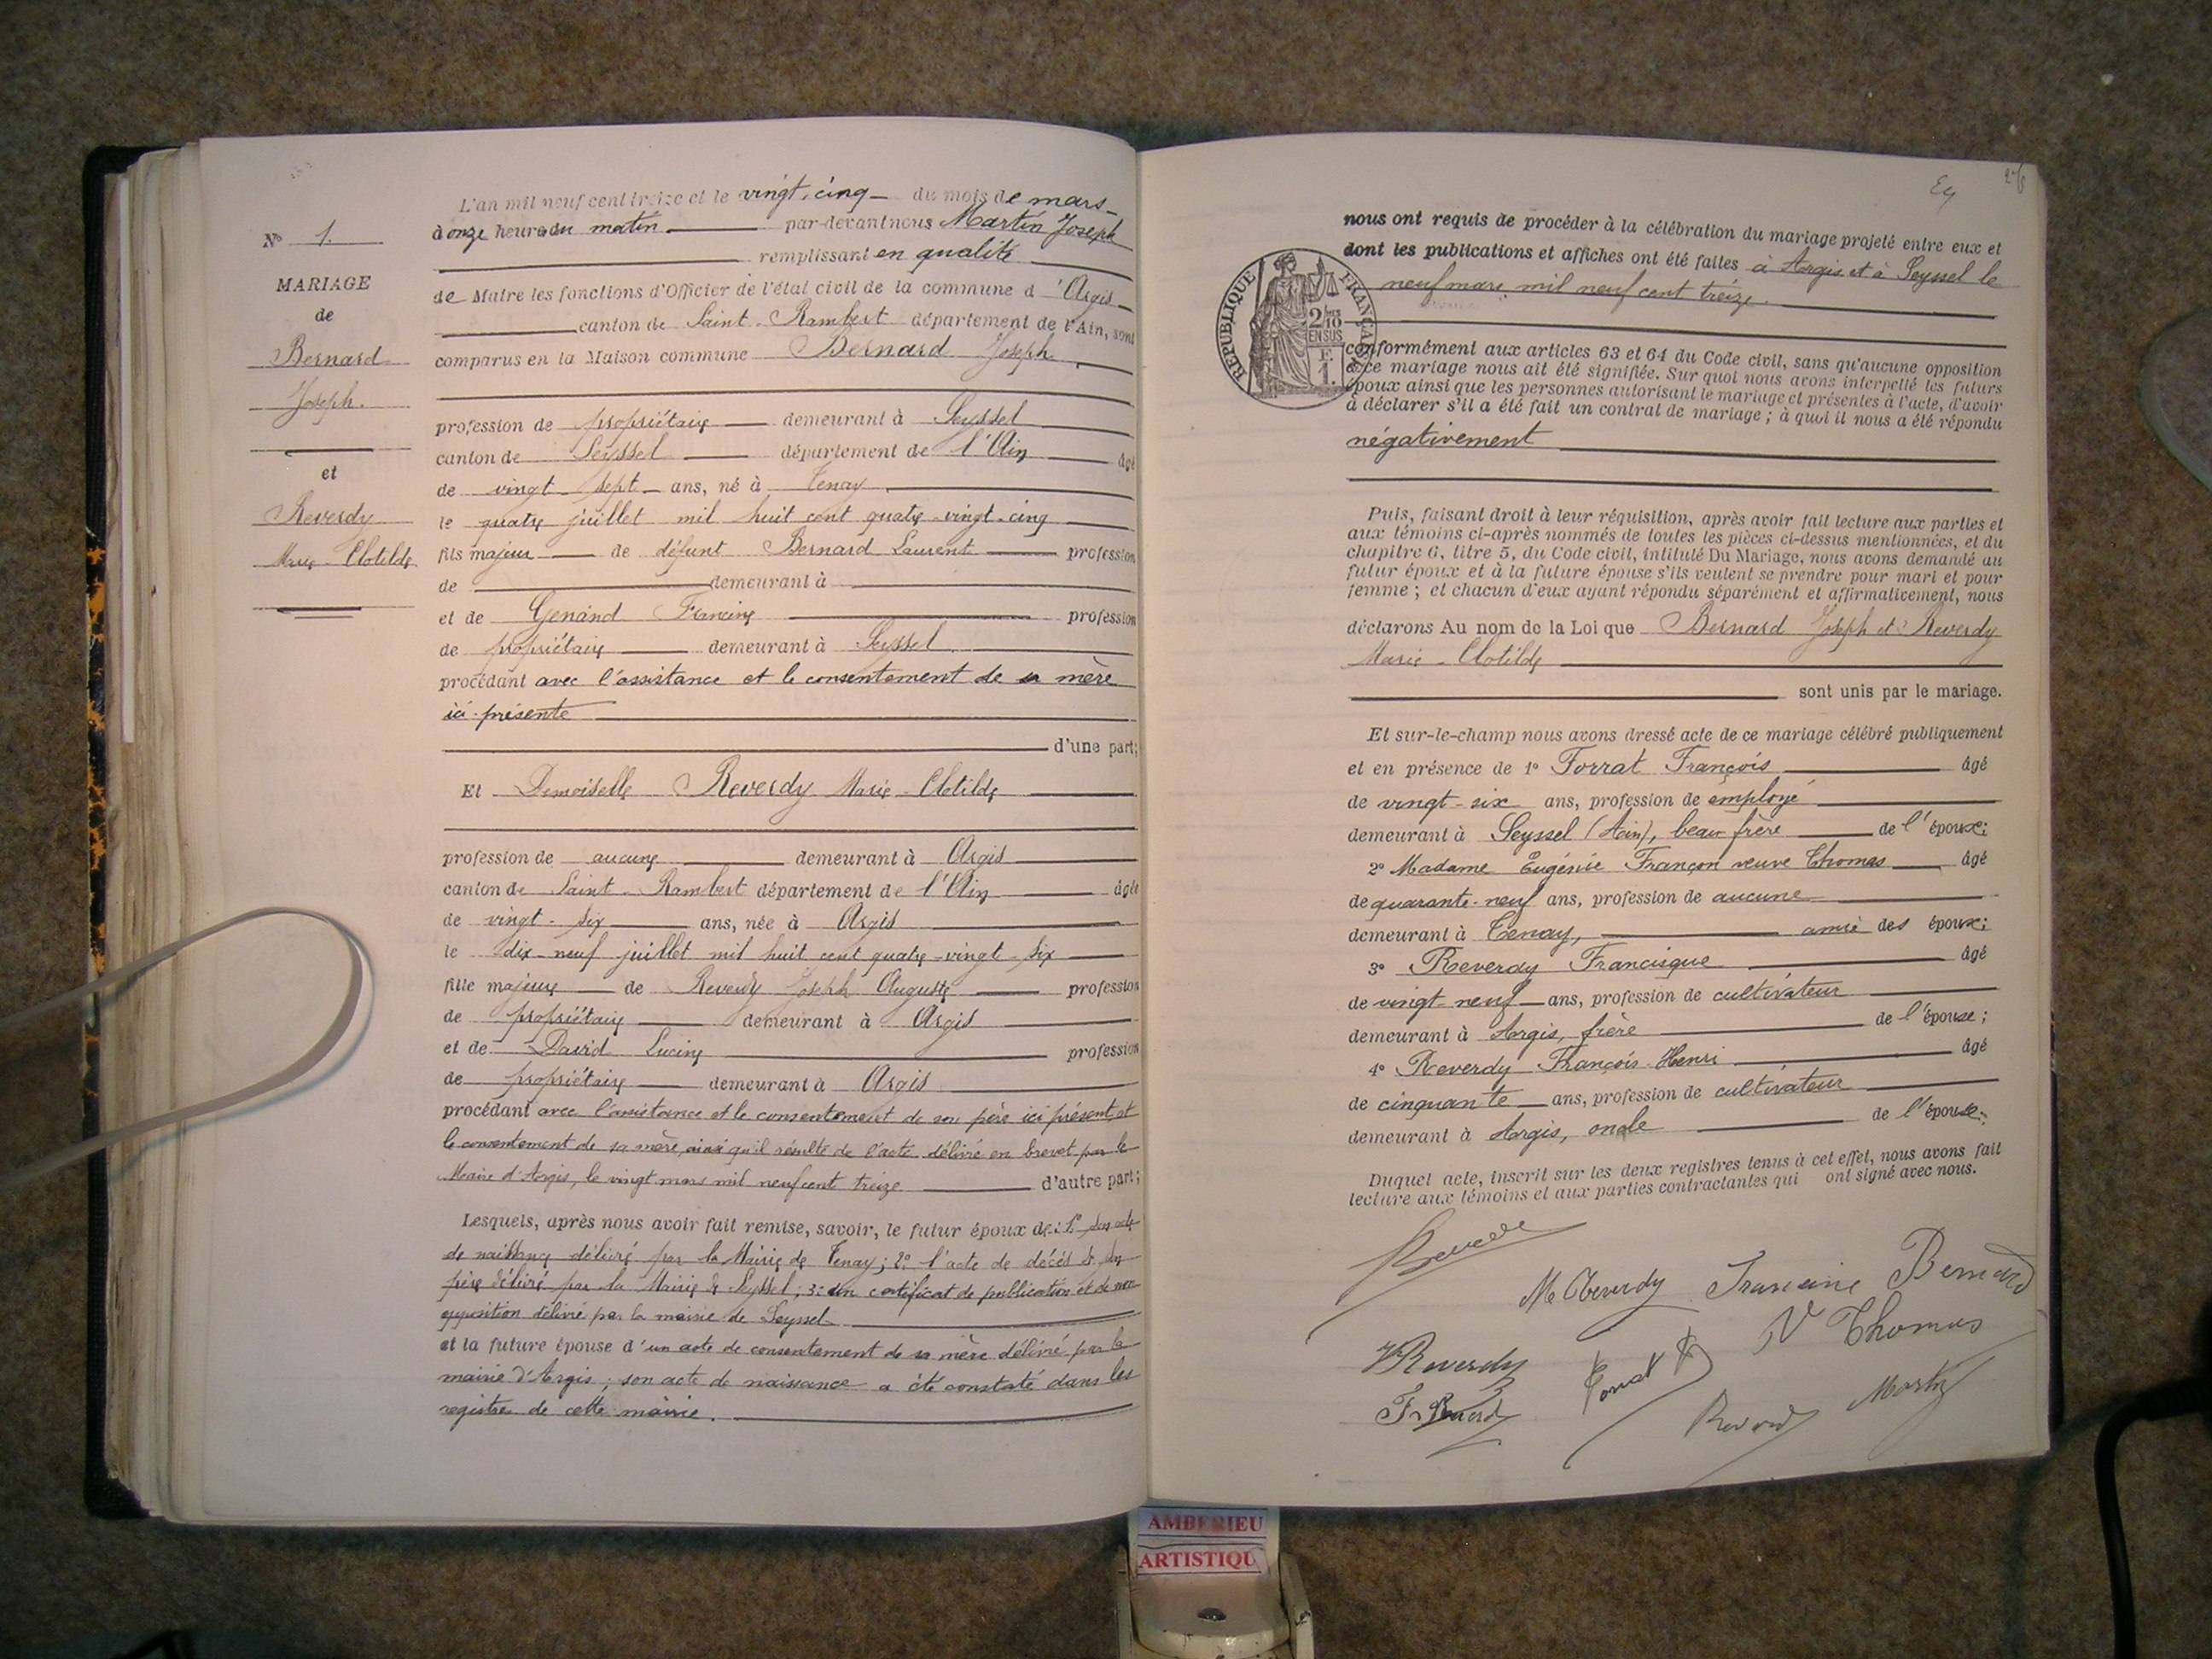 N° 1.
MARIAGE
de
Bernard
Joseph.
et
Reverdy
Marie-Clotilde
L'an mil neuf cent treize et le vingt-cinq du mois de mars
à onze heures du matin par-devant nous Martin Joseph
remplissant en qualité
de Maire les fonctions d'Officier de l'état civil de la commune d'Argis
canton de Saint-Rambert département de l'Ain, sont
comparus en la Maison commune Bernard Joseph
profession de propriétaire demeurant à Seyssel
canton de Seyssel département de l'Ain âgé
de vingt-sept ans, né à Tenay
le quatre juillet mil huit cent quatre-vingt-cinq
fils majeur de défunt Bernard Laurent profession
de demeurant à
et de Genánd Francine profession
de propriétaire demeurant à Seyssel
procédant avec l'assistance et le consentement de sa mère
ici présente
d'une part;
Et Demoiselle Reverdy Marie-Clotilde
profession de aucune demeurant à Argis
canton de Saint-Rambert département de l'Ain âgée
de vingt-six ans, née à Argis
le dix-neuf juillet mil huit cent quatre-vingt-six
fille majeure de Reverdy Joseph Auguste profession
de propriétaire demeurant à Argis
et de David Lucine profession
de propriétaire demeurant à Argis
procédant avec l'assistance et le consentement de son père ici présent, et
le consentement de sa mère, ainsi qu'il résulte de l'acte délivré en brevet par le
Maire d'Argis, le vingt mars mil neuf cent treize d'autre part;
Lesquels, après nous avoir fait remise, savoir, le futur époux de: 1° son acte
de naissance délivré par la Mairie de Tenay; 2° l'acte de décès de son
père délivré par la Mairie de Seyssel; 3° un certificat de publication et de non
opposition délivré par la mairie de Seyssel
et la future épouse d'un acte de consentement de sa mère délivré par la
mairie d'Argis; son acte de naissance a été constaté dans les
registres de cette mairie.
nous ont requis de procéder à la célébration du mariage projeté entre eux et
dont les publications et affiches ont été faites à Argis et à Seyssel le
neuf mars mil neuf cent treize.
RÉPUBLIQUE FRANÇAISE
2/10 EN SUS
F. 1.
conformément aux articles 63 et 64 du Code civil, sans qu'aucune opposition
à ce mariage nous ait été signifiée. Sur quoi nous avons interpellé les futurs
époux ainsi que les personnes autorisant le mariage et présentes à l'acte, d'avoir
à déclarer s'il a été fait un contrat de mariage; à quoi il nous a été répondu
négativement
Puis, faisant droit à leur réquisition, après avoir fait lecture aux parties et
aux témoins ci-après nommés de toutes les pièces ci-dessus mentionnées, et du
chapitre 6, titre 5, du Code civil, intitulé Du Mariage, nous avons demandé au
futur époux et à la future épouse s'ils veulent se prendre pour mari et pour
femme; et chacun d'eux ayant répondu séparément et affirmativement, nous
déclarons Au nom de la Loi que Bernard Joseph et Reverdy
Marie-Clotilde
sont unis par le mariage.
Et sur-le-champ nous avons dressé acte de ce mariage célébré publiquement
et en présence de 1° Forrat François âgé
de vingt-six ans, profession de employé
demeurant à Seyssel (Ain), beau frère de l'époux;
2° Madame Eugénie Françon veuve Thomas âgé
de quarante-neuf ans, profession de aucune
demeurant à Tenay, amie des époux;
3° Reverdy Francisque âgé
de vingt-neuf ans, profession de cultivateur
demeurant à Argis, frère de l'épouse;
4° Reverdy François-Henri âgé
de cinquante ans, profession de cultivateur
demeurant à Argis, oncle de l'épouse;
Duquel acte, inscrit sur les deux registres tenus à cet effet, nous avons fait
lecture aux témoins et aux parties contractantes qui ont signé avec nous.
M Reverdy Francine Bernard
V Thomas
Reverdy Forrat
Martin
AMBERIEU
ARTISTIQU